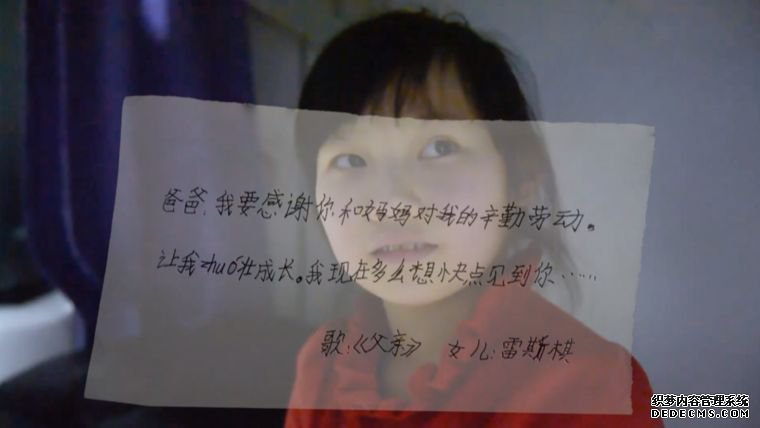 爸爸,我要感谢你和妈妈对我的辛勤劳动。
让我zhuó壮成长。我现在多么想快点见到你……
歌:《父亲》 女儿:雷斯棋
织梦内容管理系统
DEDECMS.COM